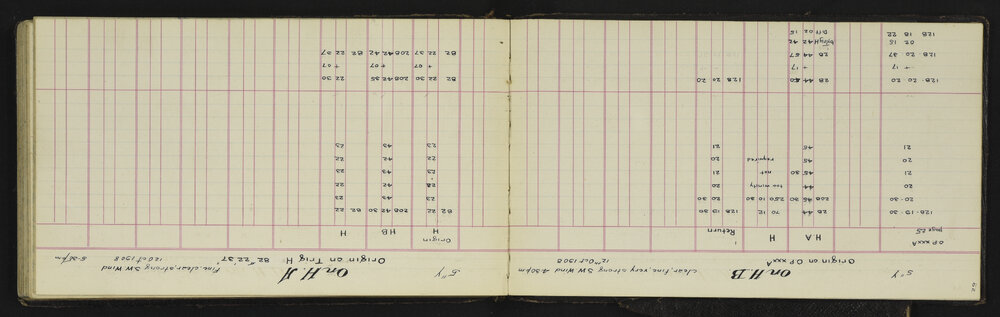 5"Y On H.B clear, fine, very strong SW Wind 4-30pm
Origin on OP xxxA 12th Oct 1908
OP xxxA H.A H Return
page 25
128·19·30 28 44 70 12 250 10 30 128 19 30
20 44 too windy 20
21 45 30 not 21
20 45 required 20
21 46 21
128·20·20 28 44 50 128 20 20
+ 17 + 17
128·20 37 28 44 67
02 15 H 42 42
128 18 22 Diff 02 15
5"Y On H.A fine, clear, strong SW Wind 5-30pm
Origin on Trig H 82° 22' 37" 12 Oct 1908
Origin H HB H
82 22 208 42 30 82 22
23 43 23
22 42 22
23 43 23
22 42 22
23 43 23
82 22 30 208 42 35 82 22 30
+ 07 + 07 + 07
82 22 37 208 42 42 82 22 37